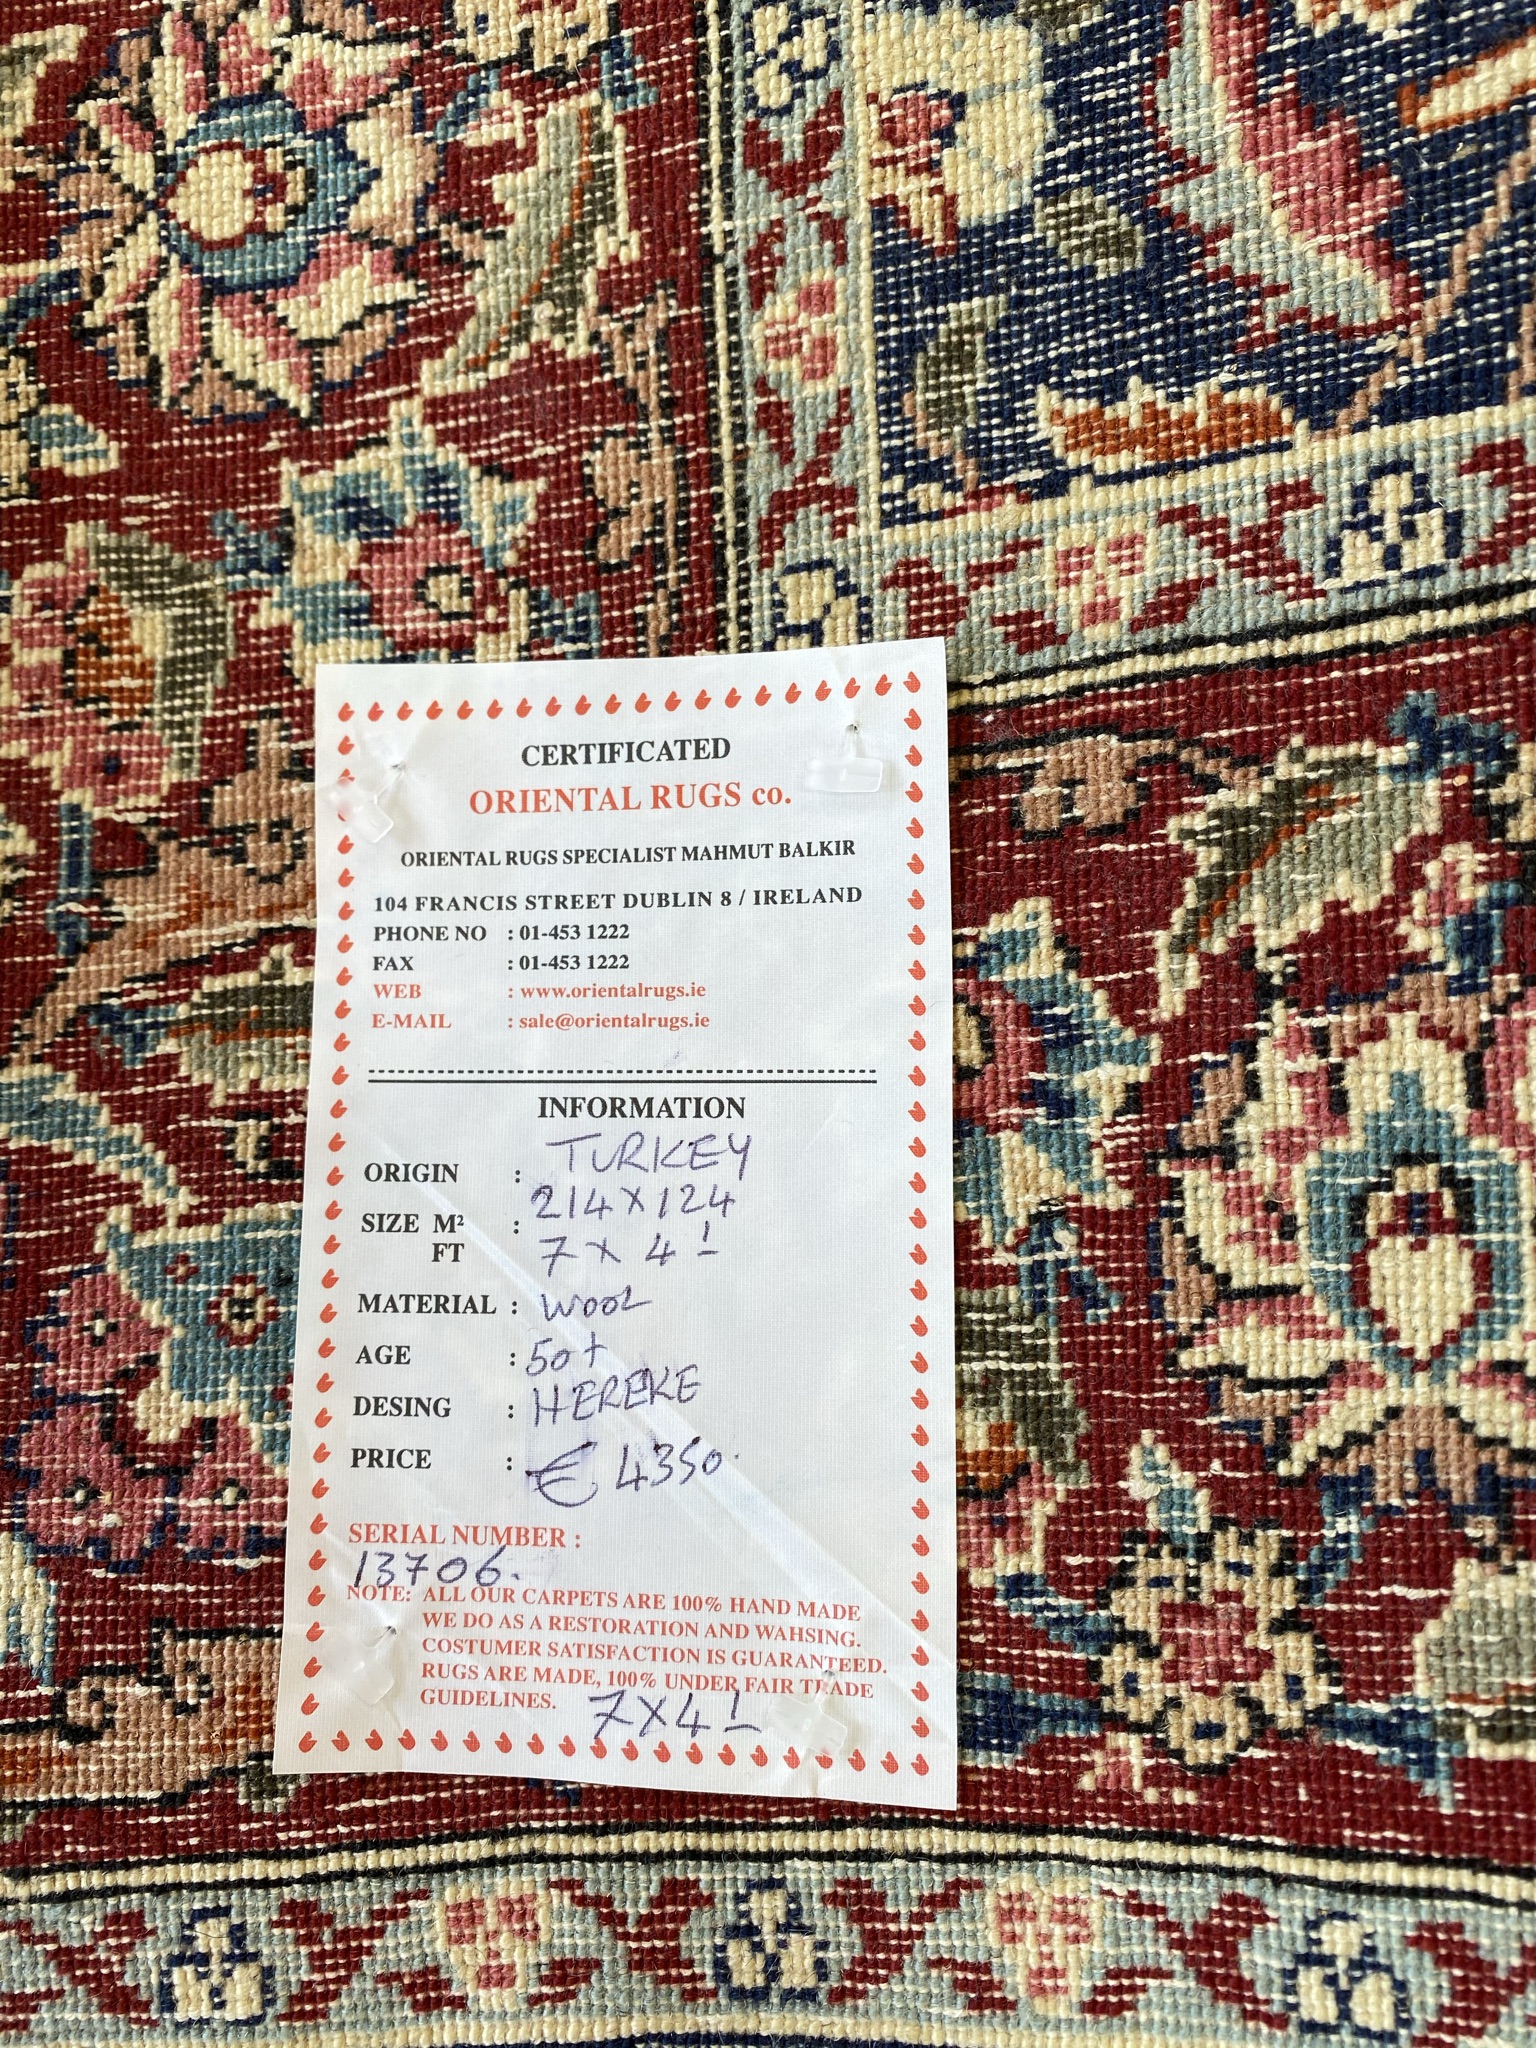 CERTIFICATED
ORIENTAL RUGS co.
ORIENTAL RUGS SPECIALIST MAHMUT BALKIR
104 FRANCIS STREET DUBLIN 8 / IRELAND
PHONE NO : 01-453 1222
FAX : 01-453 1222
WEB : www.orientalrugs.ie
E-MAIL : sale@orientalrugs.ie
INFORMATION
ORIGIN : TURKEY
SIZE M² : 214 X 124
FT 7 X 4 1
MATERIAL : WOOL
AGE : 50+
DESING : HEREKE
PRICE : € 4350.
SERIAL NUMBER :
13706.
NOTE: ALL OUR CARPETS ARE 100% HAND MADE
WE DO AS A RESTORATION AND WAHSING.
COSTUMER SATISFACTION IS GUARANTEED.
RUGS ARE MADE, 100% UNDER FAIR TRADE
GUIDELINES. 7 X 4 1